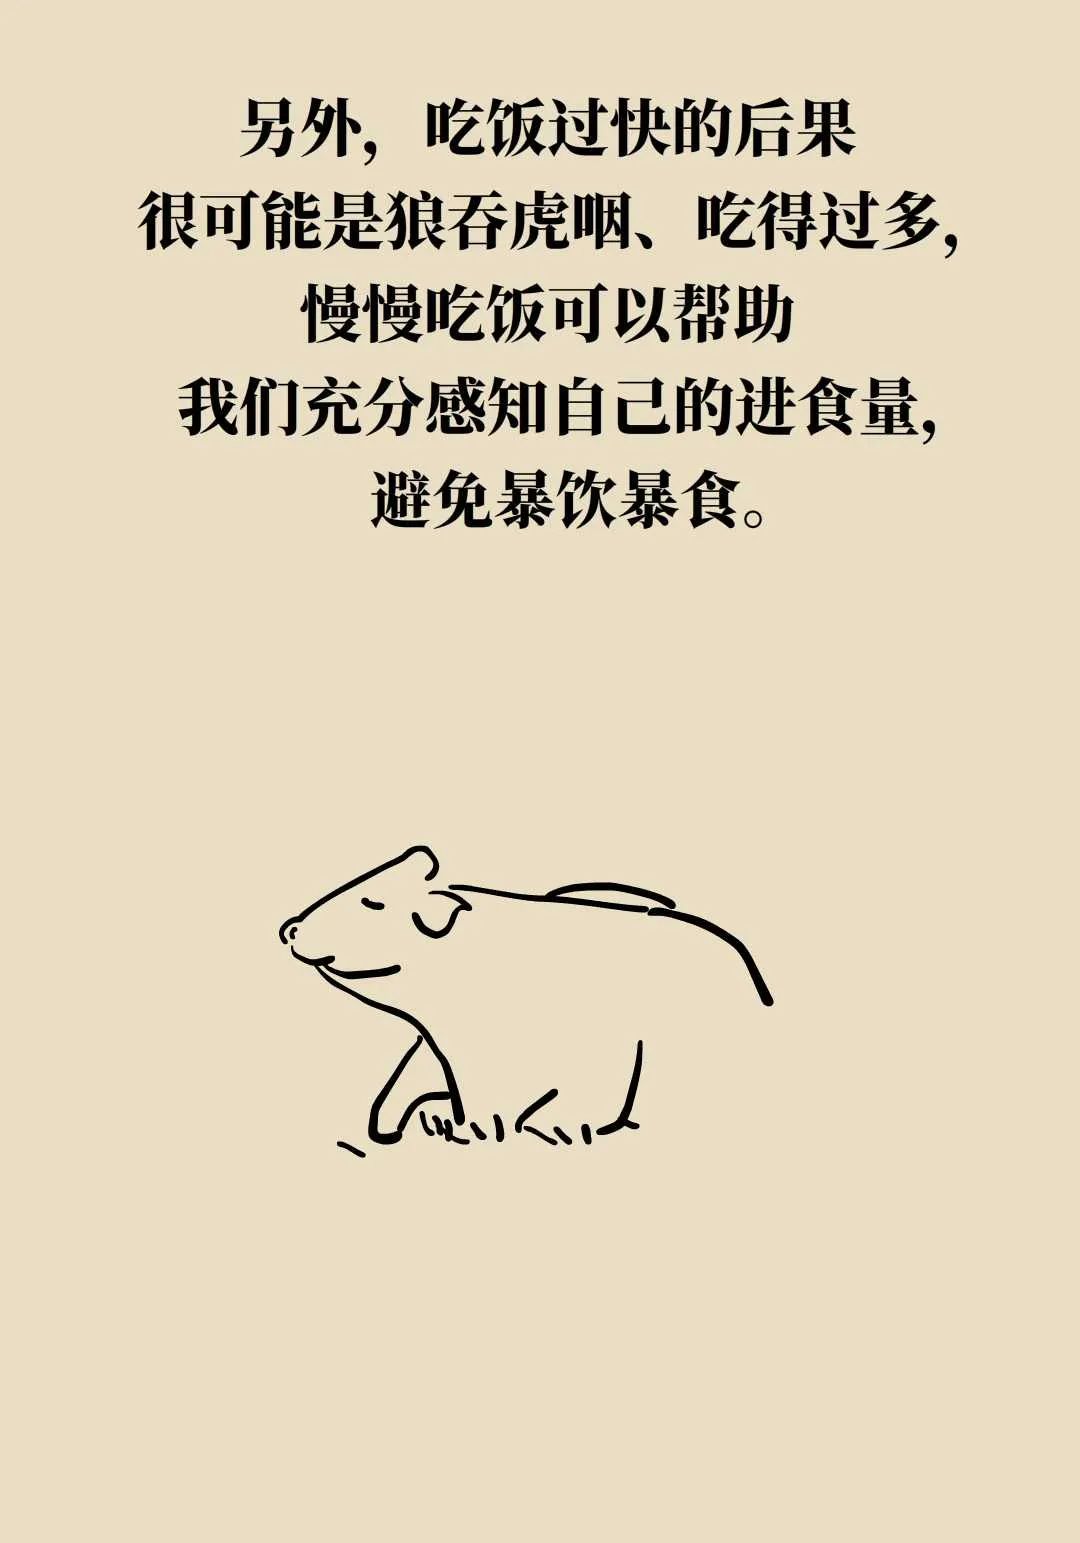 另外，吃饭过快的后果
很可能是狼吞虎咽、吃得过多，
慢慢吃饭可以帮助
我们充分感知自己的进食量，
避免暴饮暴食。